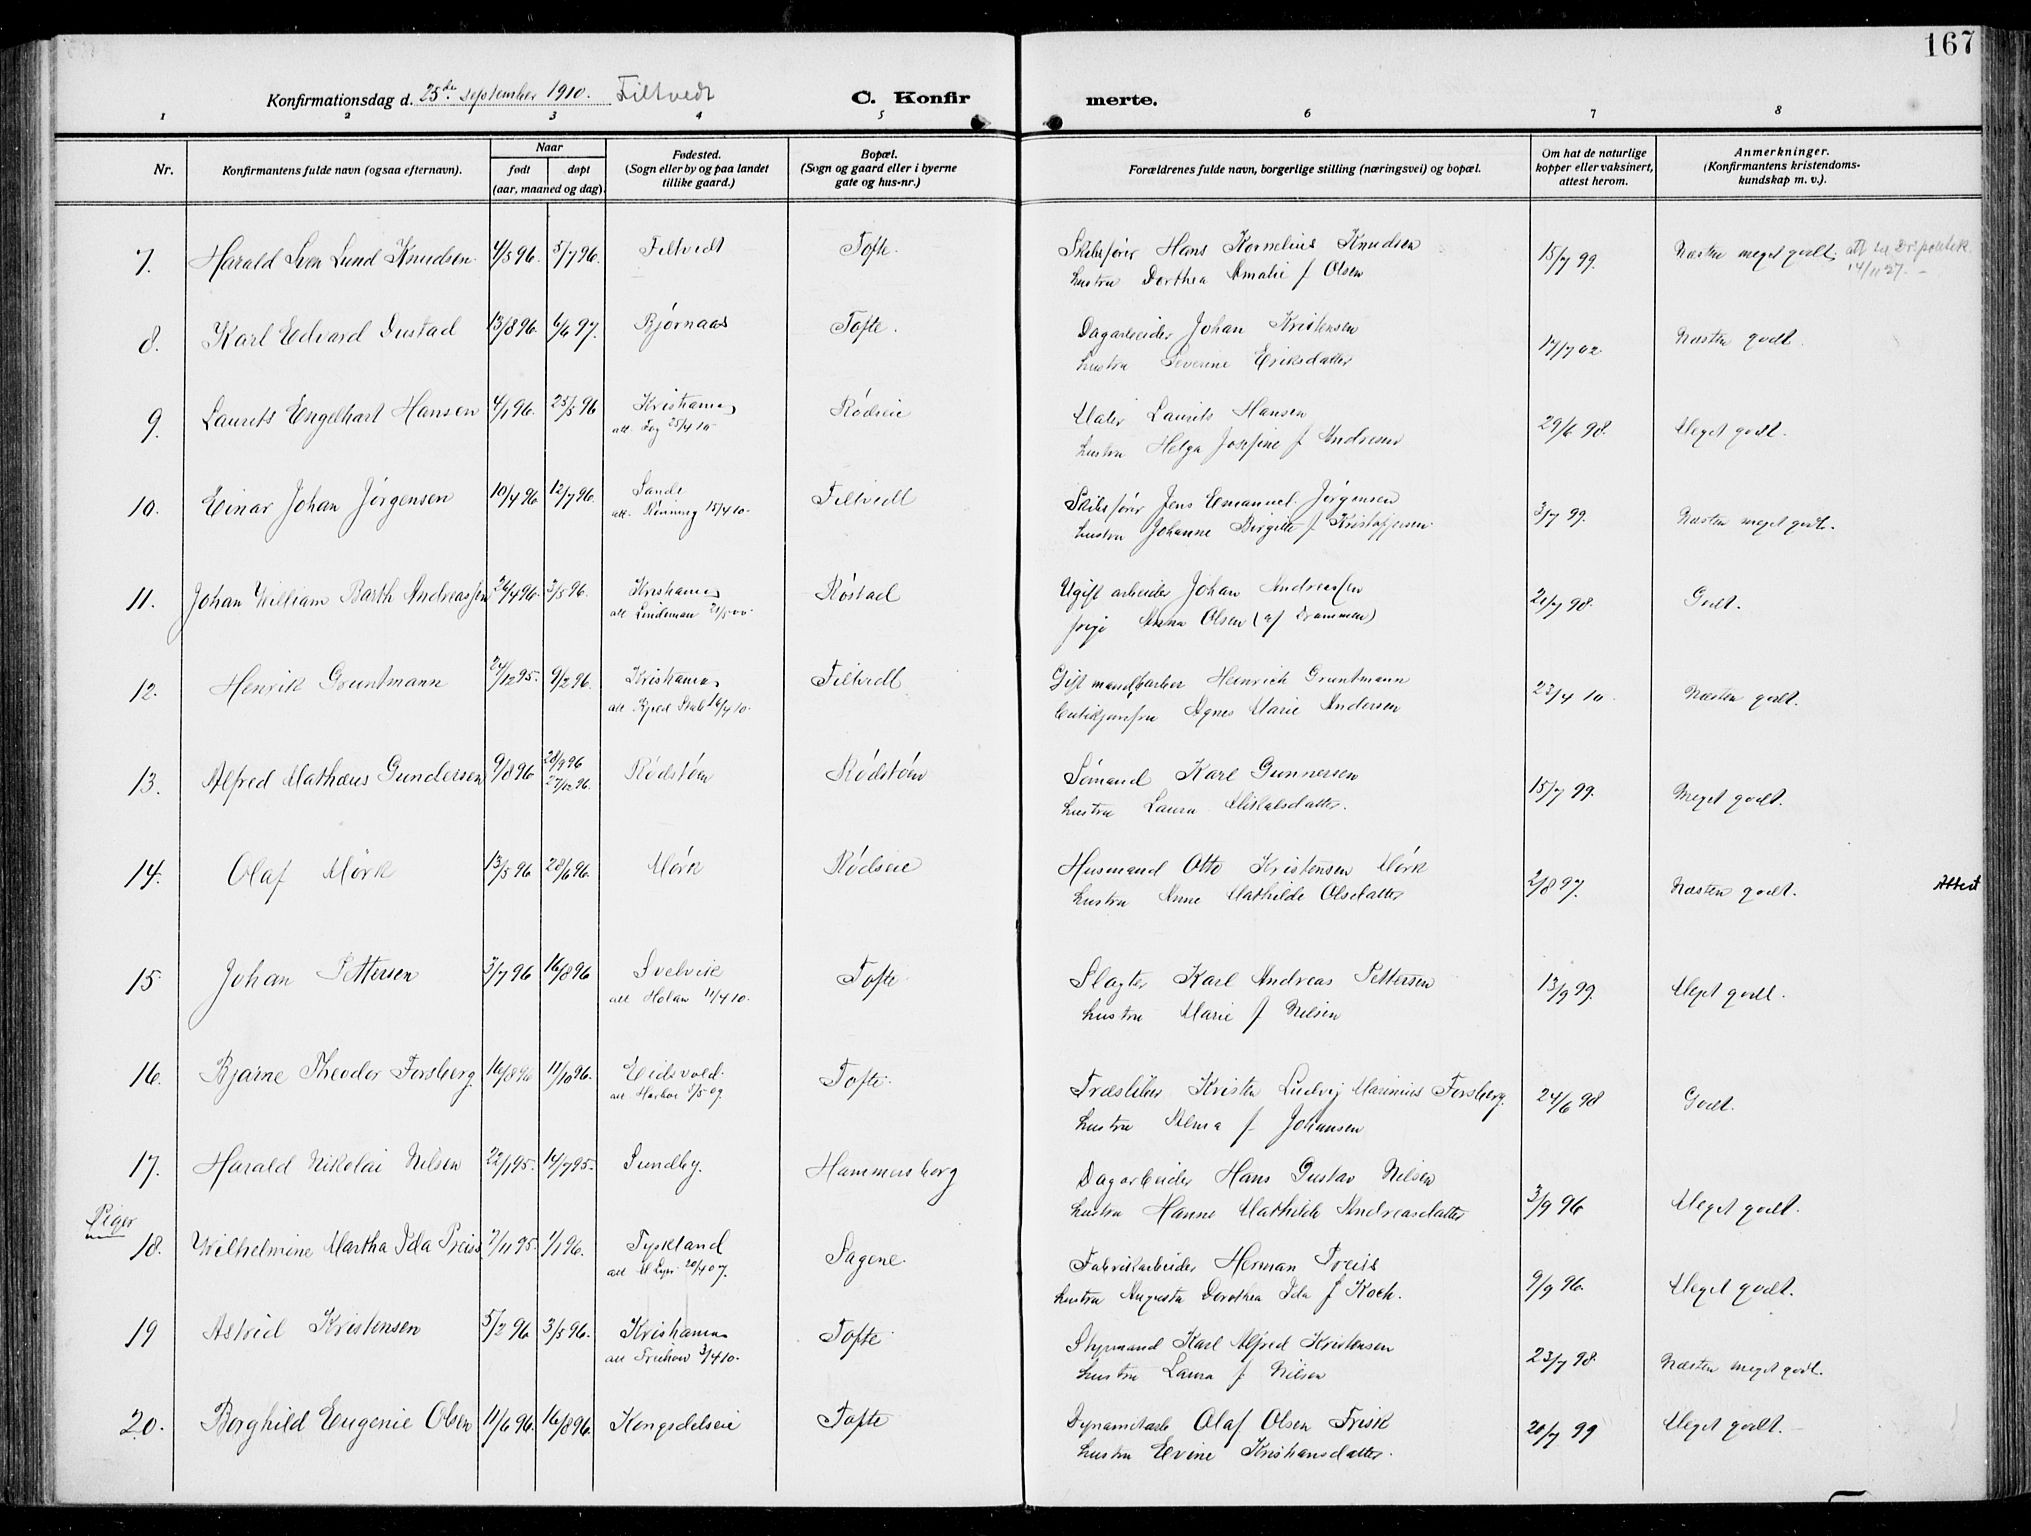 167
Konfirmationsdag d. 25de september 1910. Filtvedt C. Konfirmerte.
1 2 3 4 5 6 7 8
Nr. Konfirmantens fulde navn (ogsaa efternavn). Naar født døpt (aar, maaned og dag). Fødested. (Sogn eller by og paa landet tillike gaard.) Bopæl. (Sogn og gaard eller i byerne gate og hus-nr.) Forældrenes fulde navn, borgerlige stilling (næringsvei) og bopæl. Om hat de naturlige kopper eller vaksinert, attest herom. Anmerkninger. (Konfirmantens kristendomskundskap m. v.).
7. Harald Sven Lund Knudsen 4/5 96. 5/7 96. Filtvedt Tofte. Skibsfører Hans Kornelius Knudsen 15/7 99. Næsten meget godt.
14/11 27.
hustru Dorthea Amalie f Olsen
8. Karl Edvard Gustad 13/8 96. 6/6 97. Bjørnaas Tofte. Dagarbeider Johan Kristensen 17/7 02 Næsten godt.
hustru Severine Eriksdatter
9. Laurits Engelhart Hansen 4/1 96. 25/5 96 Kristiania Rødseie Maler Laurits Hansen 29/6 98. Meget godt.
att. Fog 25/4 10 hustru Helga Josefine f Andresen
10. Einar Johan Jørgensen 10/4 96 12/7 96. Sande Filtvedt Skibsfører Jens Emanuel Jørgensen 3/7 99. Næsten meget godt.
att. Rønning 15/4 10. hustru Johanne Birgitte f Kristoffersen
11. Johan William Barth Andreassen 26/4 96. 3/5 96. Kristiania Røstad Ugift arbeider Johan Andreassen 21/7 98. Godt.
att Lindeman 21/5 00. pige Anna Olsen (af Drammen)
12. Henrik Gruntmann 24/12 95. 9/2 96. Kristiania Filtvedt Gift mand barber Heinrich Gruntmann 23/4 10. Næsten godt.
att Kjeld Stub 16/4 10. Agnes Marie Andersen
13. Alfred Mathæus Gundersen 9/8 96 28/9 96 27/12 96. Rødstøen Rødstøen Sømand Karl Gunnersen 15/7 99. Meget godt.
hustru Laura Mikkelsdatter.
14. Olaf Mørk 13/5 96 28/6 96. Mørk Rødseie Husmand Otto Kristensen Mørk 2/8 97. Næsten godt. Attest
hustru Anne Mathilde Olsdatter
15. Johan Pettersen 3/7 96 16/8 96 Svelvik Tofte. Slagter Karl Andreas Pettersen 13/9 99. Meget godt.
att Holan 11/4 10. hustru Marie f Nilsen
16. Bjarne Theodor Forsberg 16/8 96 11/10 96. Eidsvold. Tofte. Træsliber Kristen Ludvig Marinius Forsberg. 24/6 98 Godt.
att. Harboe 5/5 09. hustru Alma f Johansen
17. Harald Nikolai Nilsen 22/1 95. 14/7 95. Sundby. Hammersborg Dagarbeider Hans Gustav Nilsen 3/9 96 Meget godt.
hustru Hanne Mathilde Andreasdatter
Piger
18. Wilhelmine Martha Ida Preiss 7/11 95. 1/1 96. Tyskland Sagene. Fabrikarbeider Herman Preiss 9/9 96. Meget godt.
att 20/4 07. hustru Augusta Dorothea Ida f Koch.
19 Astrid Kristensen 5/2 96 3/5 96. Kristiania Tofte Styrmand Karl Alfred Kristensen 23/7 98. Næsten meget godt.
att 3/4 10. hustru Laura f. Nilsen
20. Borghild Eugenie Olsen 11/6 96. 16/8 96. Kongsdelseie Tofte Dynamitarb Olaf Olsen Frisk 20/7 99 Meget godt.
hustru Evine Kristiansdatter.